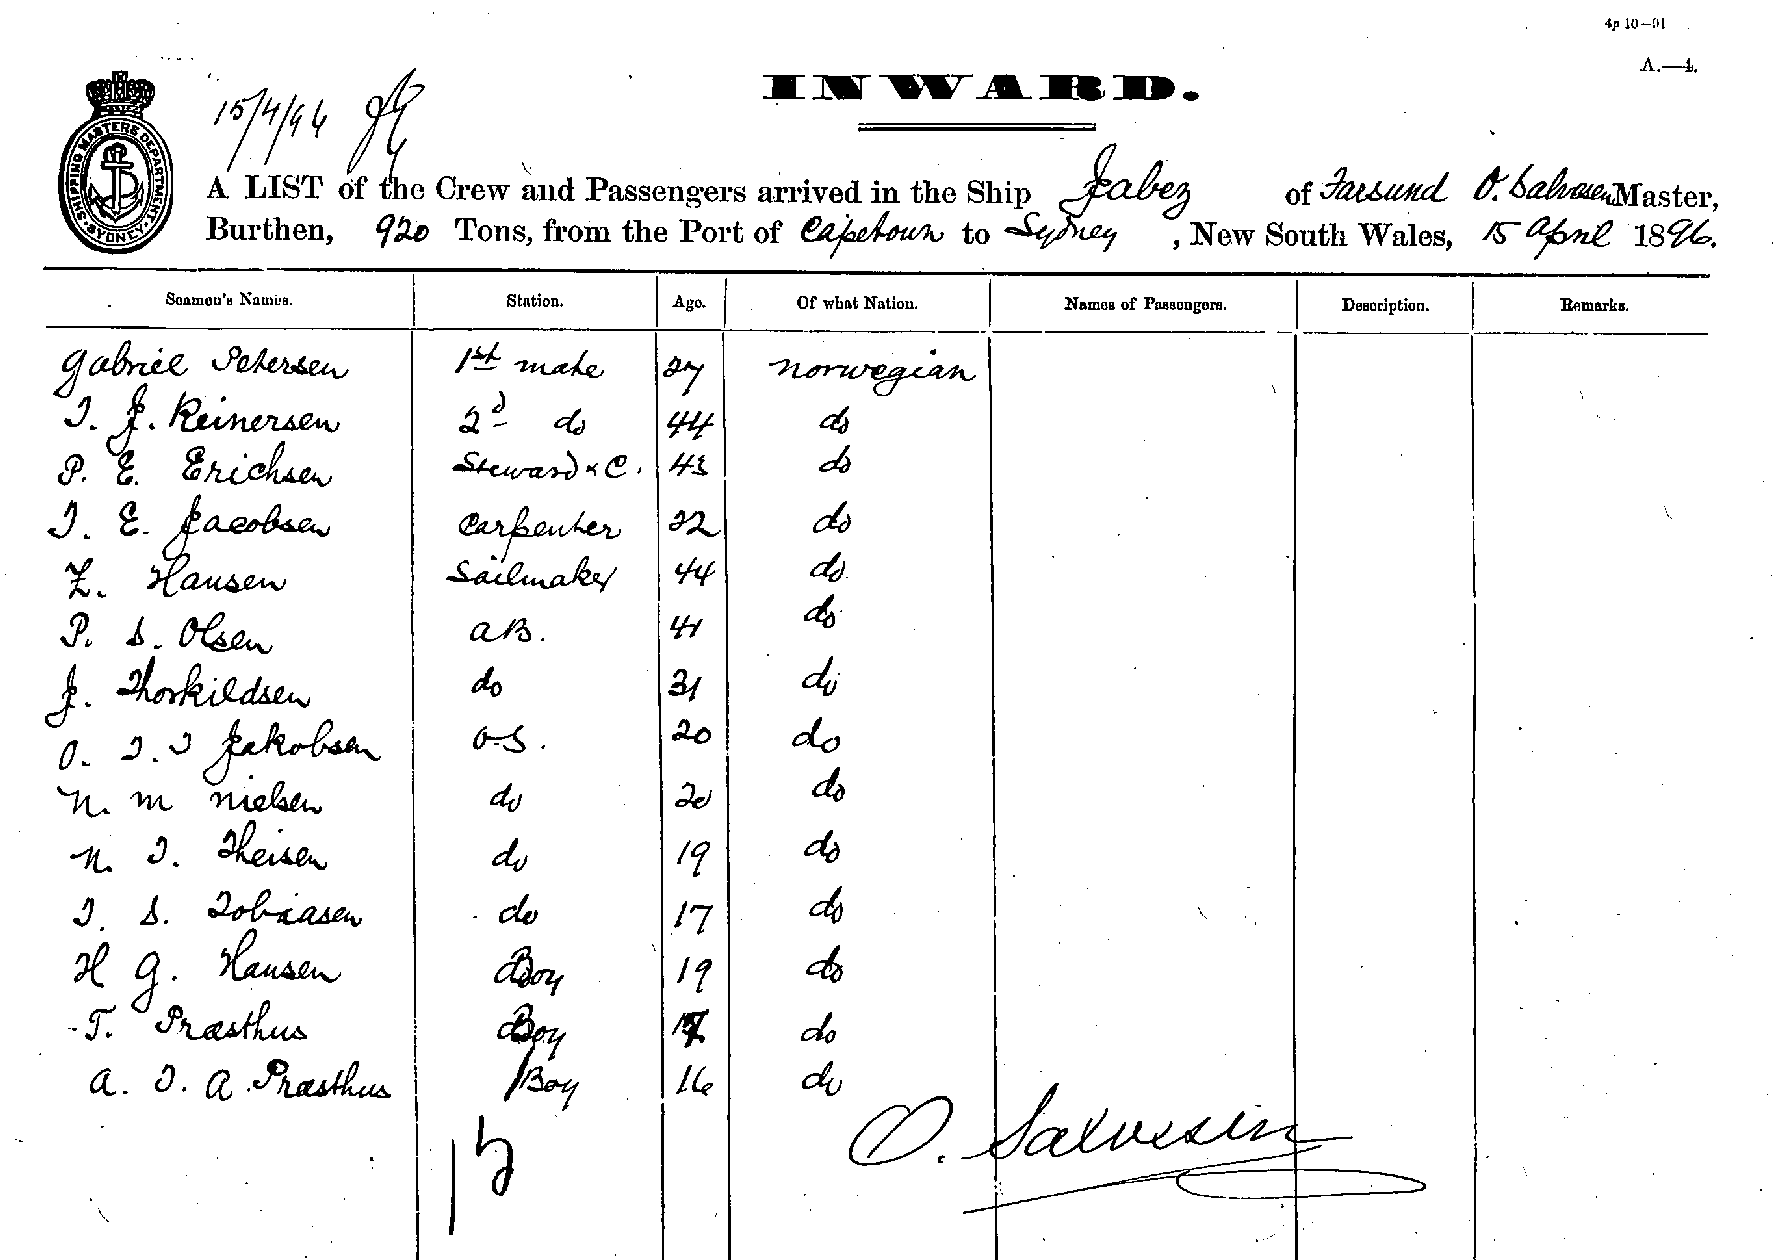 4p 10—91
A.—4.
INWARD.
15/4/96
SHIPPING MASTERS DEPARTMENT SYDNEY
A LIST of the Crew and Passengers arrived in the Ship Jabez of Farsund O. Salvesen Master,
Burthen, 920 Tons, from the Port of Capetown to Sydney, New South Wales, 15 April 1896.
Seamen's Names. Station. Age. Of what Nation. Names of Passengers. Description. Remarks.
Gabriel Petersen 1st mate 27 Norwegian
T. J. Reinersen 2d do 44 do
P. E. Erichsen Steward & C. 43 do
T. E. Jacobsen Carpenter 22 do
Z. Hansen Sailmaker 44 do
P. S. Olsen AB. 41 do
J. Thorkildsen do 31 do
O. T. T Jakobsen O.S. 20 do
N. M Nielsen do 20 do
N. T. Theisen do 19 do
T. S. Tobiasen do 17 do
H G. Hansen Boy 19 do
T. Præsthus Boy do
A. T. A Præsthus Boy 16 do
O. Salvesen